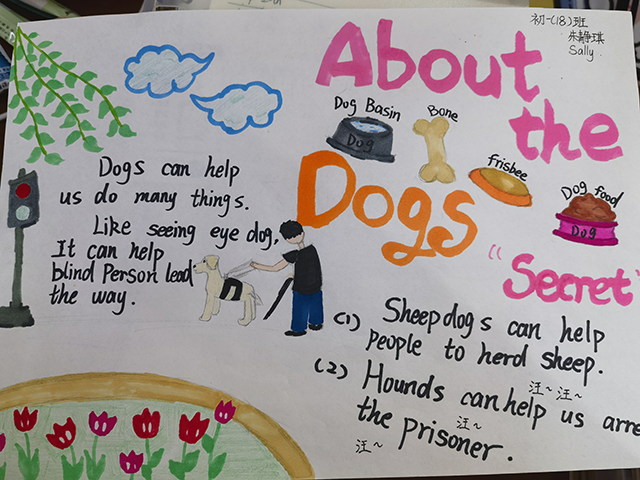 初一(18)班
朱静琪
Sally
About
the
Dogs
"Secret"
Dog Basin
Dog
Bone
frisbee
Dog food
Dog
Dogs can help
us do many things.
Like seeing eye dog,
It can help
blind Person lead
the way.
(1) Sheepdogs can help
people to herd sheep.
(2) Hounds can help us arre
the prisoner.
汪~汪~
汪~
汪~